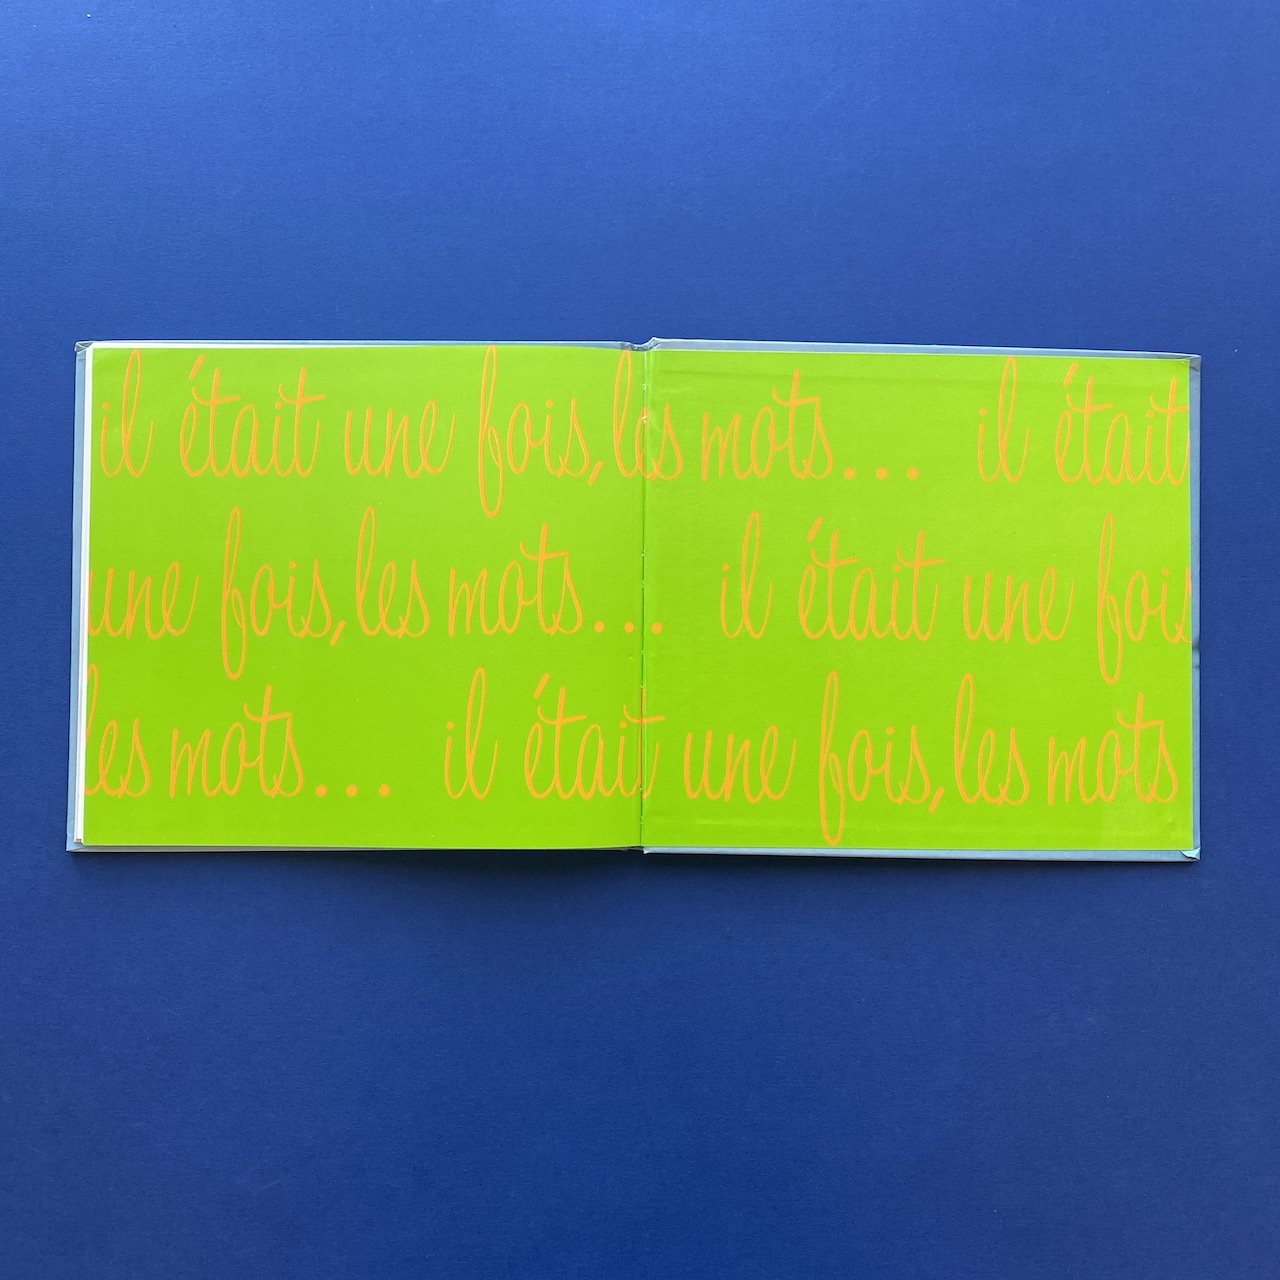 il était une fois, les mots... il était
une fois, les mots... il était une fois
les mots... il était une fois, les mots